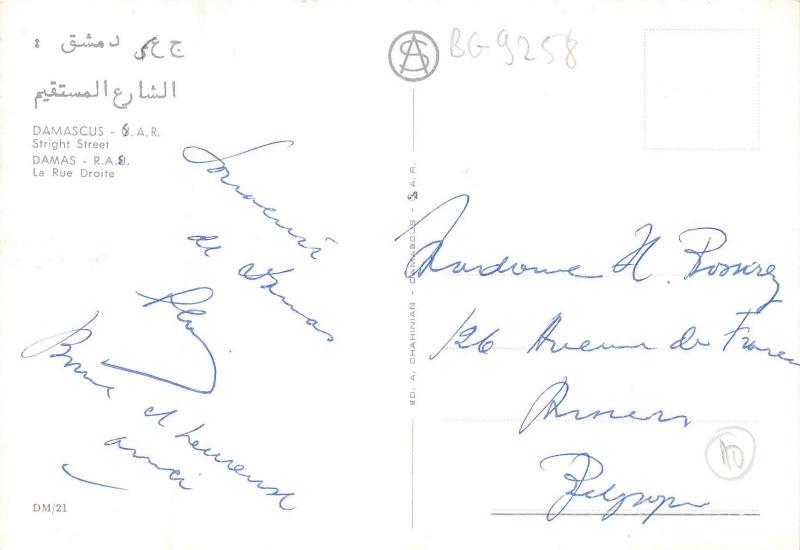 ج ع س دمشق :
الشارع المستقيم
DAMASCUS - S.A.R.
Stright Street
DAMAS - R.A.S.
La Rue Droite
Souvenir
de Damas
Bonne et heureuse
année
DM/21
AS
BG-9258
ED. A. CHAHINIAN - DAMASCUS - S.A.R.
Madame H.
126 Avenue de France
Anvers
Belgique